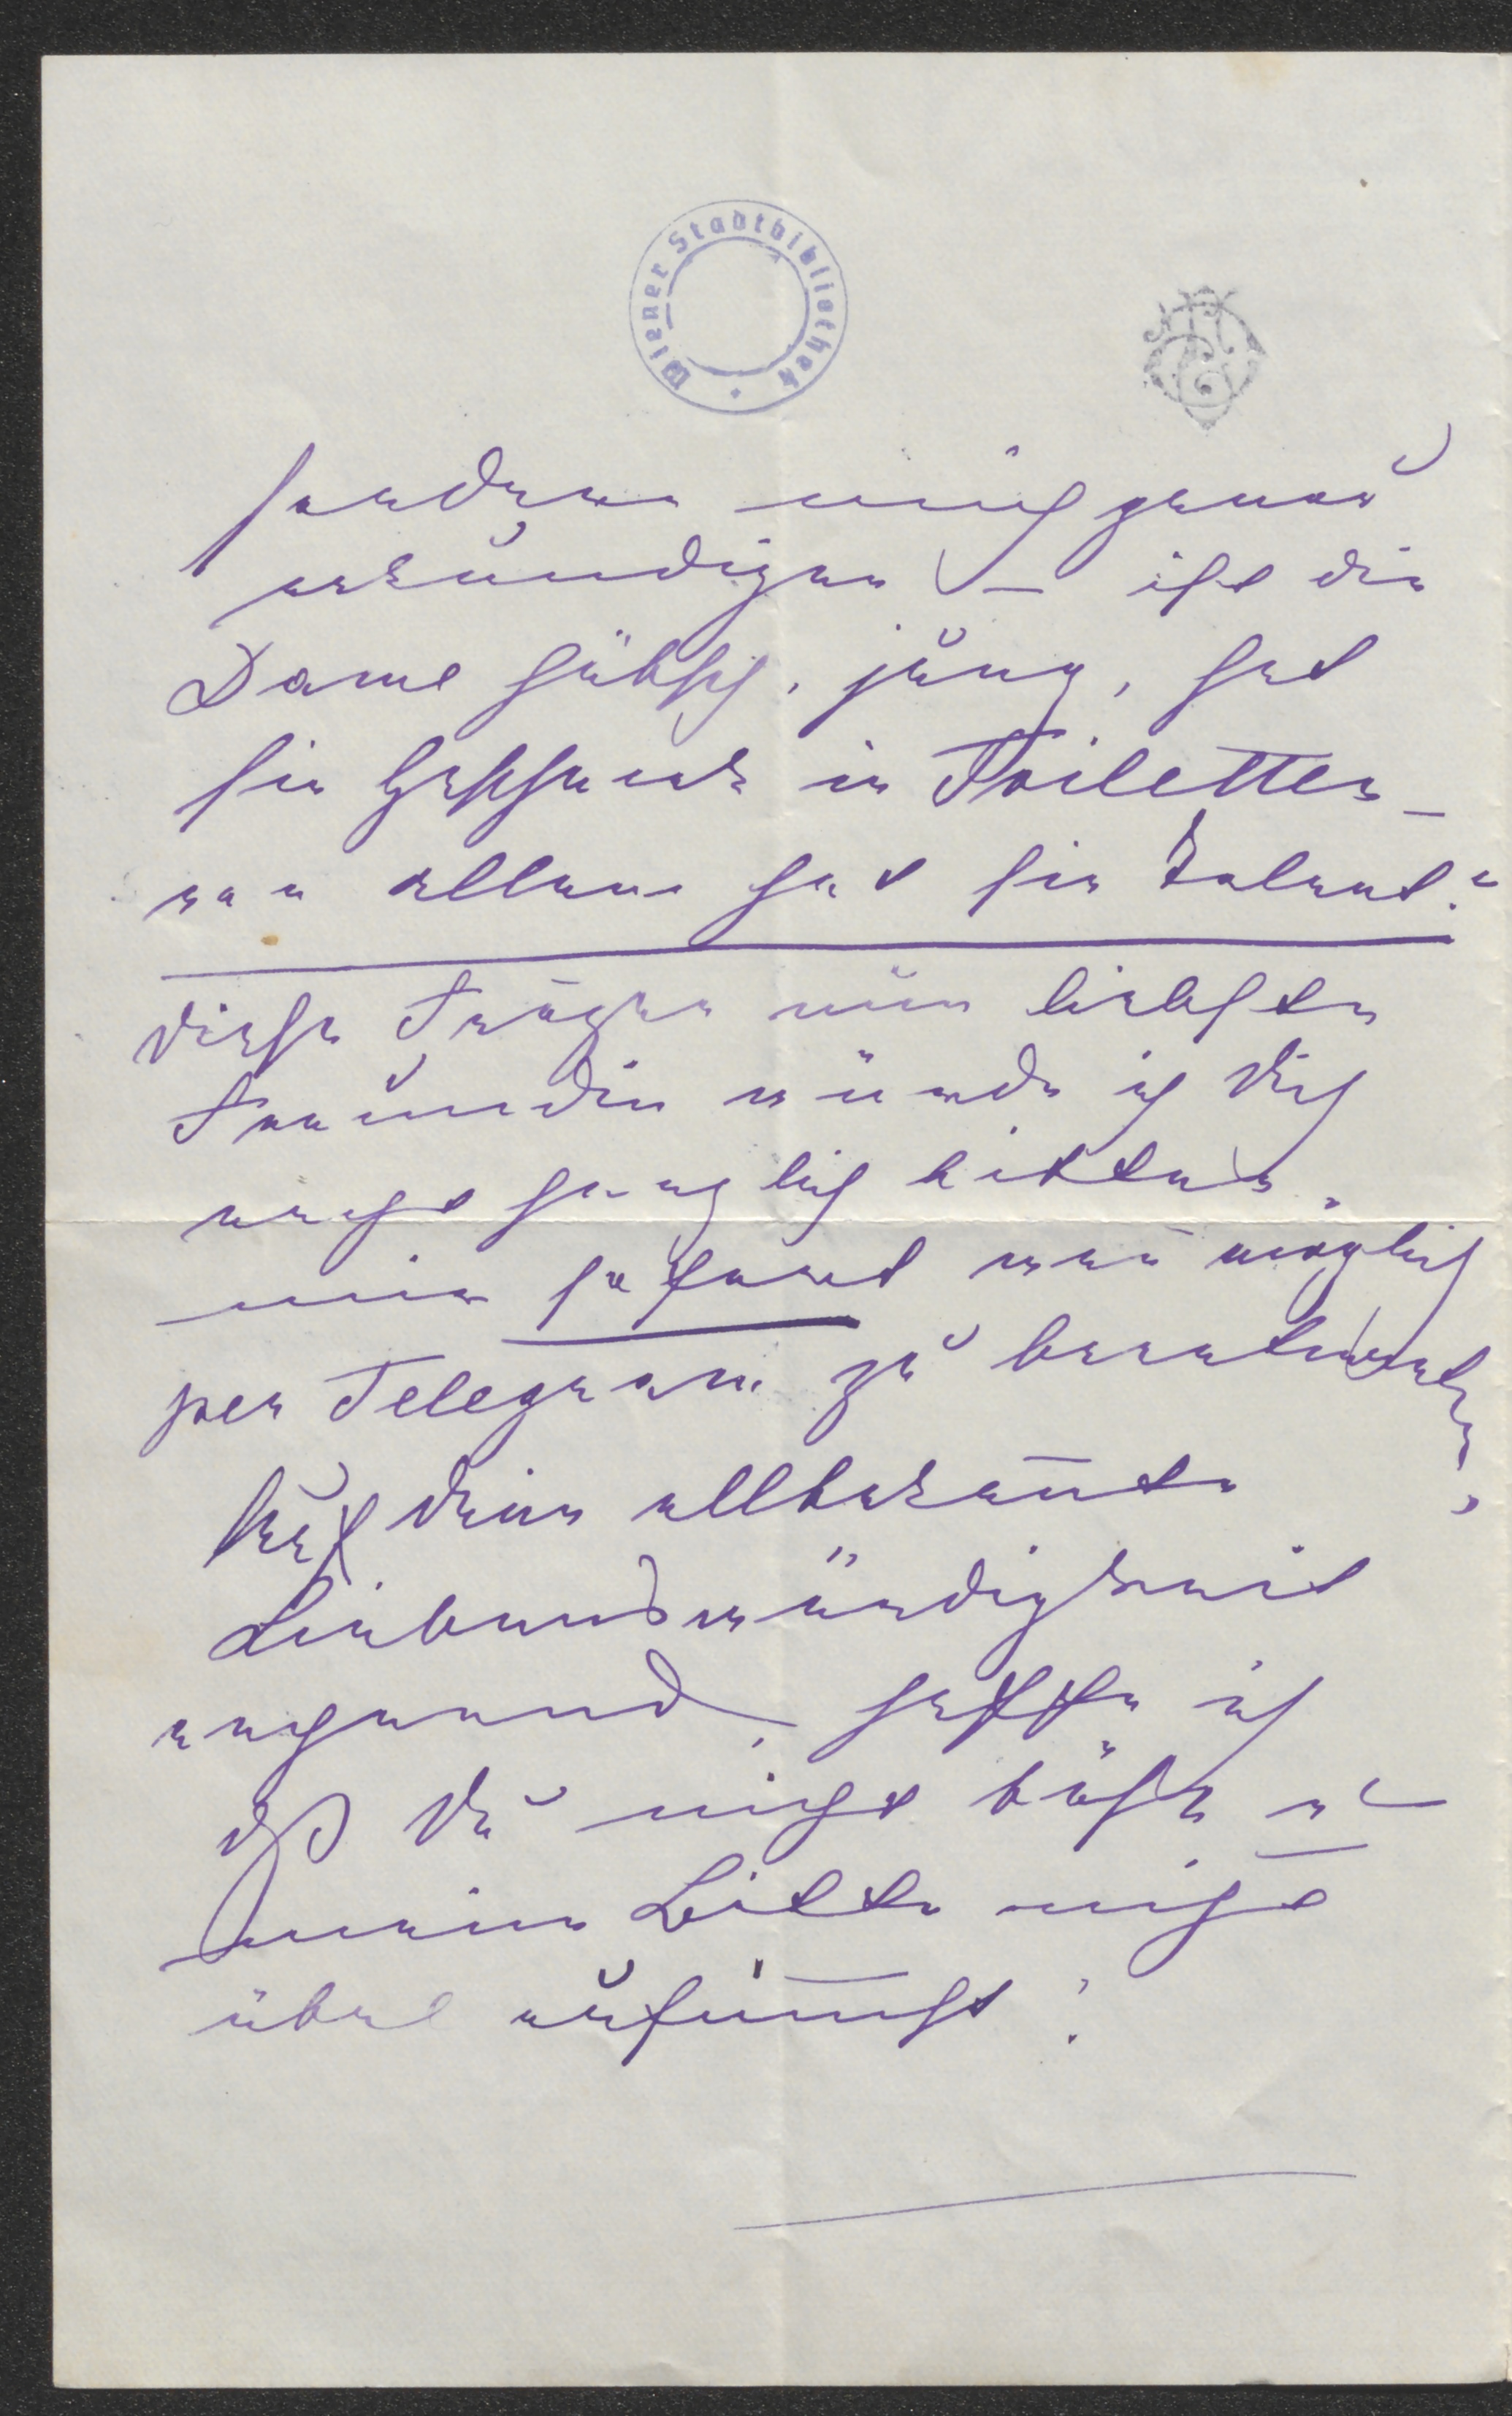 Wiener Stadtbibliothek
sondern mich genau
erkundigen – ist die
Dame hübsch, jung, hat
sie Geschmack in Toiletten –
vor allem hat sie Talent?
Diese Fragen nun liebste
Freundin würde ich Dich
recht herzlich bitten,
mir sofort wen̄ möglich
per Telegram zu beantworten,
Auf Deine allbekan̄te
Liebenswürdigkeit
hoffe ich
dß Du nicht böse u
meine Bitte nicht
übel aufnim̄st!